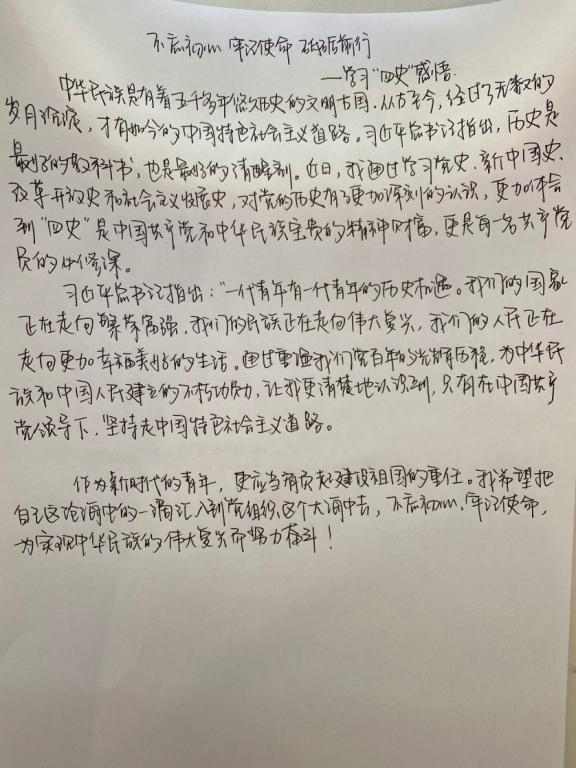 不忘初心 牢记使命 砥砺前行
——学习“四史”感悟
中华民族是有着五千多年悠久历史的文明古国,从古至今,经过了无数的
岁月沉淀,才有如今的中国特色社会主义道路。习近平总书记指出,历史是
最好的教科书,也是最好的清醒剂。近日,我通过学习党史、新中国史、
改革开放史和社会主义发展史,对党的历史有了更加深刻的认识,更加体会
到“四史”是中国共产党和中华民族宝贵的精神财富,更是每一名共产党
员的必修课。
习近平总书记指出:“一代青年有一代青年的历史机遇。我们的国家
正在走向繁荣富强,我们的民族正在走向伟大复兴,我们的人民正在
走向更加幸福美好的生活。通过重温我们党百年的光辉历程,为中华民
族和中国人民建立的不朽功勋,让我更清楚地认识到,只有在中国共产
党领导下,坚持走中国特色社会主义道路。
作为新时代的青年,更应当肩负起建设祖国的重任。我希望把
自己这沧海中的一滴汇入到党组织这个大海中去,不忘初心、牢记使命,
为实现中华民族的伟大复兴而努力奋斗!